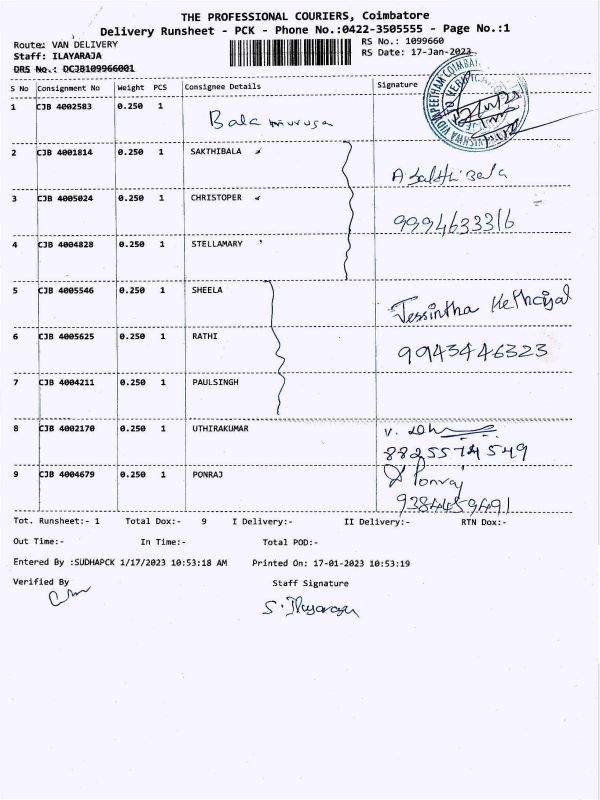 THE PROFESSIONAL COURIERS, Coimbatore
Delivery Runsheet - PCK - Phone No.:0422-3505555 - Page No.:1
Route: VAN DELIVERY RS No.: 1099660
Staff: ILAYARAJA RS Date: 17-Jan-2023
DRS No.: DCJB109966001
S No Consignment No Weight PCS Consignee Details Signature
1 CJB 4002583 0.250 1 Bala muruga
2 CJB 4001814 0.250 1 SAKTHIBALA A Sakthi Bala
3 CJB 4005024 0.250 1 CHRISTOPER 9994633316
4 CJB 4004828 0.250 1 STELLAMARY
5 CJB 4005546 0.250 1 SHEELA Jessintha
6 CJB 4005625 0.250 1 RATHI 9943446323
7 CJB 4004211 0.250 1 PAULSINGH
8 CJB 4002170 0.250 1 UTHIRAKUMAR V.
8825574549
9 CJB 4004679 0.250 1 PONRAJ Ponraj
9384459491
Tot. Runsheet:- 1 Total Dox:- 9 I Delivery:- II Delivery:- RTN Dox:-
Out Time:- In Time:- Total POD:-
Entered By :SUDHAPCK 1/17/2023 10:53:18 AM Printed On: 17-01-2023 10:53:19
Verified By Staff Signature
S. Ilayaraja